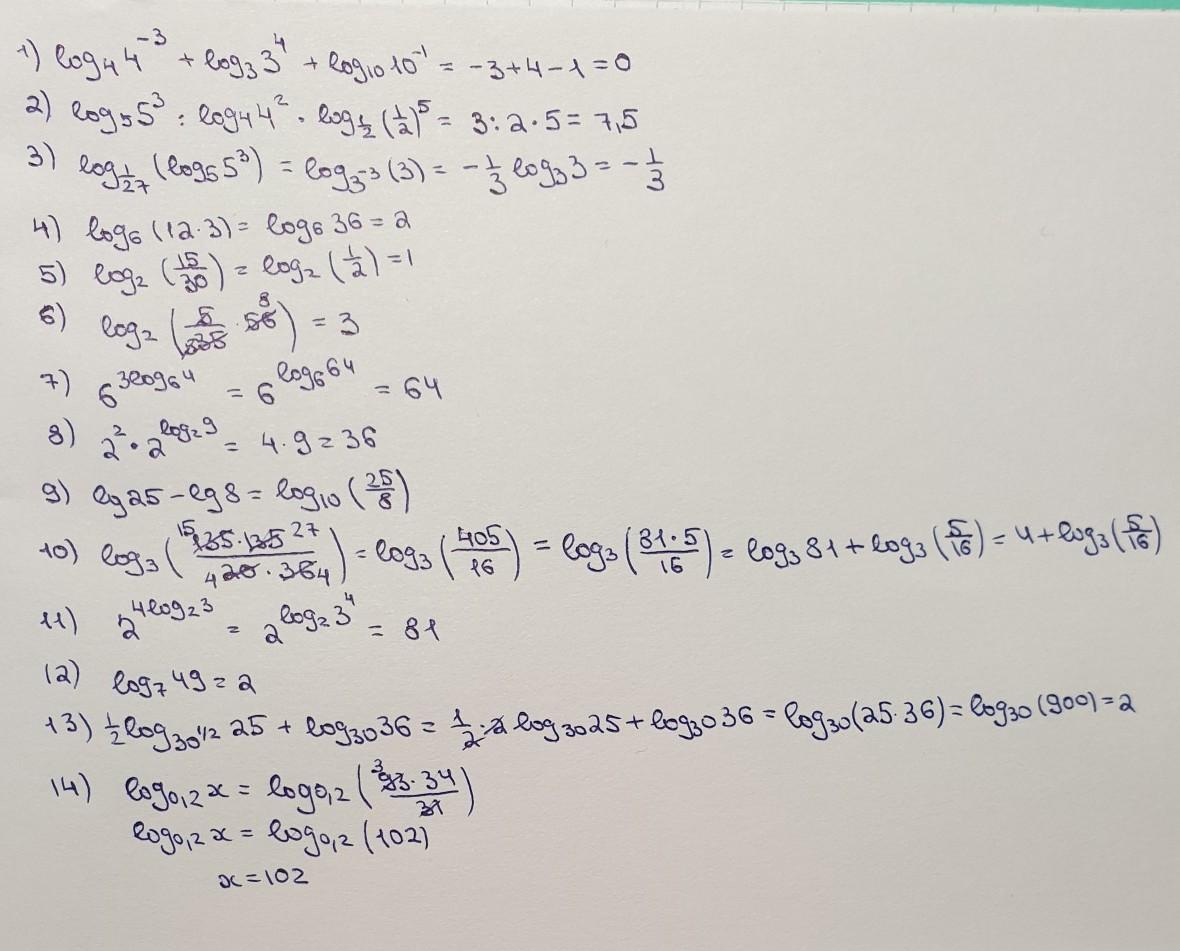 1) log₄4⁻³ + log₃3⁴ + log₁₀10⁻¹ = -3+4-1=0
2) log₅5³ : log₄4² · log_{1/2}(1/2)⁵ = 3:2·5 = 7,5
3) log_{1/27}(log₅5³) = log_{3⁻³}(3) = -1/3 log₃3 = -1/3
4) log₆(12·3) = log₆36 = 2
5) log₂(15/30) = log₂(1/2) = 1
6) log₂(5/35 · 56 8) = 3
7) 6^{3log₆4} = 6^{log₆64} = 64
8) 2² · 2^{log₂9} = 4·9 = 36
9) lg25 - lg8 = log₁₀(25/8)
10) log₃(15 135·135 27 / 4 20·36 4) = log₃(405/16) = log₃(81·5/16) = log₃81 + log₃(5/16) = 4 + log₃(5/16)
11) 2^{4log₂3} = 2^{log₂3⁴} = 81
12) log₇49 = 2
13) 1/2 log_{30^{1/2}}25 + log₃₀36 = 1/2·2 log₃₀25 + log₃₀36 = log₃₀(25·36) = log₃₀(900) = 2
14) log₀,₂x = log₀,₂(3 93·34/31)
log₀,₂x = log₀,₂(102)
x = 102